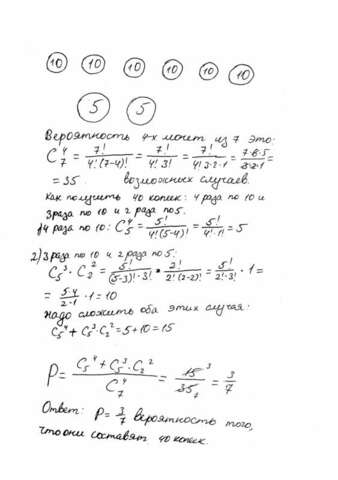 10 10 10 10 10 10
5 5
Вероятность 4-х монет из 7 это:
C₇⁴ = 7!/4!(7-4)! = 7!/4!·3! = 7!/4!·3·2·1 = 7·6·5/3·2·1 =
= 35 возможных случаев.
Как получить 40 копеек: 4 раза по 10 и
3 раза по 10 и 2 раза по 5.
1) 4 раза по 10: C₅⁴ = 5!/4!(5-4)! = 5!/4!·1! = 5
2) 3 раза по 10 и 2 раза по 5:
C₅³·C₂² = 5!/(5-3)!·3! * 2!/2!(2-2)! = 5!/2!·3! · 1 =
= 5·4/2·1 · 1 = 10
Надо сложить оба этих случая:
C₅⁴ + C₅³·C₂² = 5 + 10 = 15
P = C₅⁴ + C₅³·C₂²/C₇⁴ = 15³/35₇ = 3/7
Ответ: P = 3/7 вероятность того,
что они составят 40 копеек.